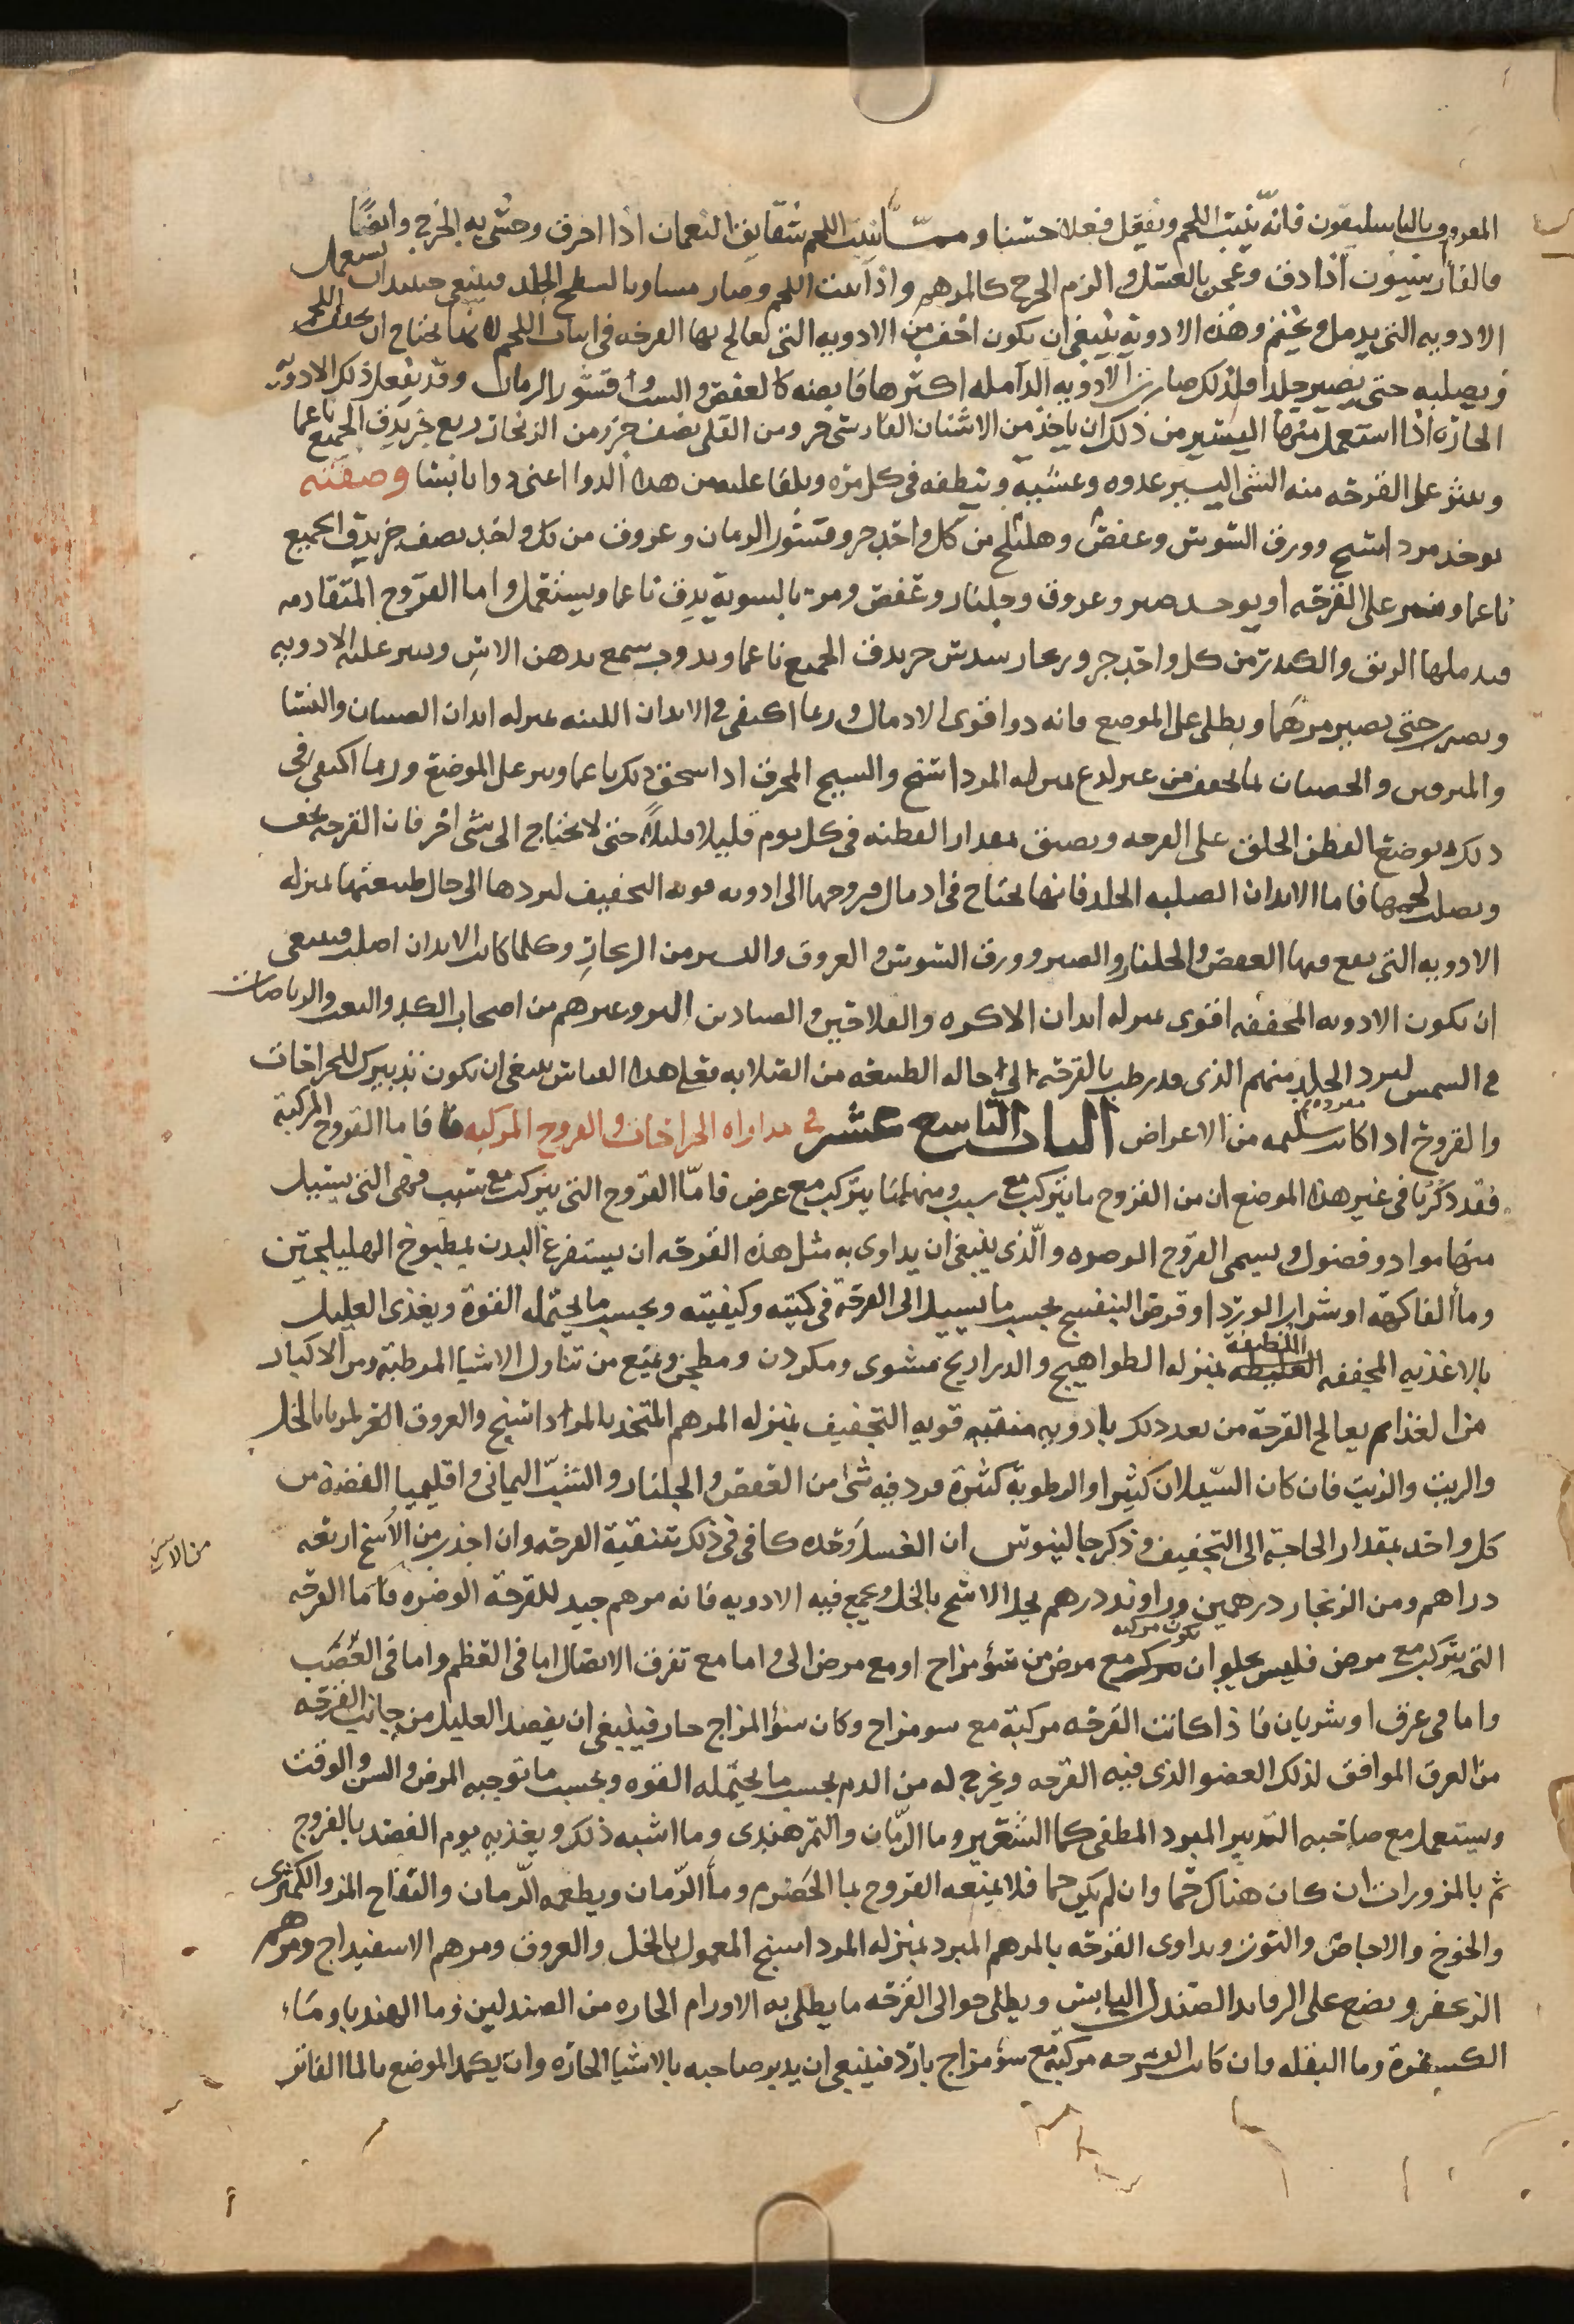 المعروف بالباسليقون فانه ينبت اللحم ويفعل فعلا حسنا ومما ينبت اللحم شقايق النعمان اذا احرق وحشي به الجرح وايضًا
فالفاريقيون اذا دق وعجن بالعسل والزم الجرح كالمرهم واذا انبت اللحم وصار مساويا لسطح الجلد فينبغي حينئذ ان يستعمل
الادويه التي يدمل ويختم وهذه الادوية ينبغي ان يكون اخف من الادويه التي يعالج بها القرحه في انبات اللحم لانها يحتاج ان يجفف اللحم
ويصلبه حتى يصير جلدا ولذلك صارت الادويه الدامله اكثرها قابضه كالعفص والشب وقشور الرمان وقد يفعل ذلك الادوية
الحارة اذا استعمل منها اليسير من ذلك ان ياخذ من الاشنان الفارسي جزو ومن القلي نصف جزء من الزنجار ربع جزء يدق الجميع ناعما
وينثر على القرحه منه الشي اليسير غدوه وعشيه وينظفه في كل مره ويلقا عليه من هذا الدوا اعني دوا يابسا وصفته
يوخذ مرداسنج وورق السوسن وعفص وهليلج من كل واحد جزو وقشور الرمان وعروق من كل واحد نصف جزء يدق الجميع
ناعما وينثر على القرحه او يوخذ صبر وعروق وجلنار وعفص ومر بالسويه يدق ناعما ويستعمل واما القروح المتقادمه
فيدملها الزفت والكندر من كل واحد جزو وزنجار سدس جزء يدق الجميع ناعما ويذوب شمع بدهن الاس وينثر عليه الادويه
ويضرب حتى يصير مرهما ويطلى على الموضع فانه دوا قوي الادمال وربما اكتفي في الابدان اللينه بمنزله ابدان الصبيان والنسا
والمترفين والخصيان لما يجفف من غير لذع بمنزله المرداسنج والشيح المحرق اذا سحق ذلك ناعما ونثر على الموضع وربما اكتفي في
ذلك بوضع القطن الخلق على القرحه وينقص بمقدار القطنه في كل يوم قليلا قليلاً حتى لا يحتاج الى شي اخر فان القرحه تجف
ويصلب لحمها فاما الابدان الصلبه الجلد فانها تحتاج في ادمال قروحها الى ادويه قويه التجفيف ليردها الى حال طبيعتها بمنزله
الادويه التي يقع فيها العفص والجلنار والصبر وورق السوسن والعروق واليسير من الزنجار وكلما كانت الابدان اصلب فينبغي
ان يكون الادويه المجففه اقوى بمنزله ابدان الاكره والفلاحين والصيادين البر وغيرهم من اصحاب الكد والتعب والرياضات
في الشمس ليرد الجلد منهم الذي قد رطب بالقرحه الى حاله الطبيعه من الصلابه فعلى هذا القياس ينبغي ان يكون تدبيرك للجراحات
والقروح اذا كانت مفرده سليمه من الاعراض الباب التاسع عشر في مداواه الجراحات والقروح المركبه فاما القروح المركبة
فقد ذكرنا في غير هذا الموضع ان من القروح ما يتركب مع سبب ومنها ما يتركب مع عرض فامّا القروح التي يتركب مع سبب فهي التي يسيل
منها مواد وفضول ويسمى القروح الوضره والّذي ينبغي ان يداوى به مثل هذه القرحه ان يستفرغ البدن بمطبوخ الهليلجين
وماٌ الفاكهة او شراب الورد او قرص البنفسج بحسب ما يسيل الى القرحة في كميته وكيفيته وبحسب ما يحتمله القوة ويغذى العليل
بالاغذيه المجففه اللطيفة بمنزله الطواهيج والدراريج مشوي ومكردن ومطجن ويمنع من تناول الاشيا المرطبة ومن الاكثار
من الغذا ثم يعالج القرحة من بعد ذلك بادويه منقيه قويه التجفيف بمنزله المرهم المتخذ بالمرداسنج والعروق المربا بالخل
والزيت والزفت فان كان السّيلان كثيرا والرطوبة كثيرة فزد فيه شيٌ من العفص والجلنار والشبّ اليماني واقليميا الفضه من
كل واحد بمقدار الحاجة الى التجفيف وذكر جالينوس ان العسل وحده كافي في ذلك بتنقية القرحه وان اخذ من الاشج اربعه
من الاس
دراهم ومن الزنجار درهمين وراوند درهم يحل الاشج بالخل ويجمع فيه الادويه فانه مرهم جيد للقرحة الوضره فامّا القرحه
التي يتركب مع مرض فليس يخلوا ان يكون مركبه مع مرض من سٔو مزاج او مع مرض الي واما مع تفرق الاتصال اما في العظم واما في العصَب
واما في عرق او شريان فاذا كانت القرحه مركبة مع سو مزاج وكان سوٌ المزاج حار فينبغي ان يفصد العليل من جانب القرحه
من العرق الموافق لذلك العضو الذي فيه القرحه ويخرج له من الدم بحسب ما يحتمله القوه وبحسب ما توجبه المرض والسن والوقت
ويستعمل مع صاحبه التدبير المبرد المطفي كما الشعير وما الرّمان والتمر هندي وما اشبه ذلك ويغذيه يوم الفصد بالفروج
ثم بالمزورات ان كان هناك حّما وان لم يكن حما فلا يمنعه الفروج بما الحصرم وماٌ الرّمان ويطعمه الرّمان والتفاح المز والكمثرى
والخوخ والاجاص والتوت ويداوى القرحه بالمرهم المبرد بمنزله المرداسنج المعمول بالخل والعروق ومرهم الاسفيداج ومرهم
الزعفر ويضع على الرفايد الصندل اليابس ويطلى حوالى القرحه ما يطلى به الاورام الحاره من الصندلين وما الهندبا وماء
الكسفرة وما البقله وان كانت القرحه مركبة مع سؤ مزاج بارد فينبغي ان يدبر صاحبه بالاشيا الحاره وان يكمد الموضع بالما الفاتر